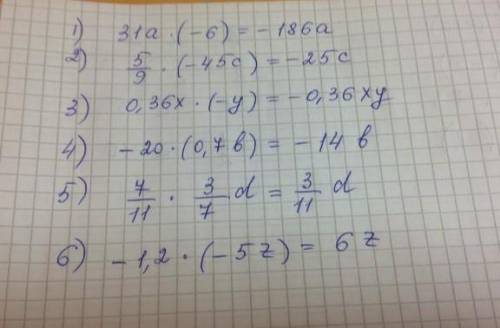 1) 31a · (-6) = -186a
2) 5/9 · (-45c) = -25c
3) 0,36x · (-y) = -0,36xy
4) -20 · (0,7в) = -14 в
5) 7/11 · 3/7 d = 3/11 d
6) -1,2 · (-5z) = 6z